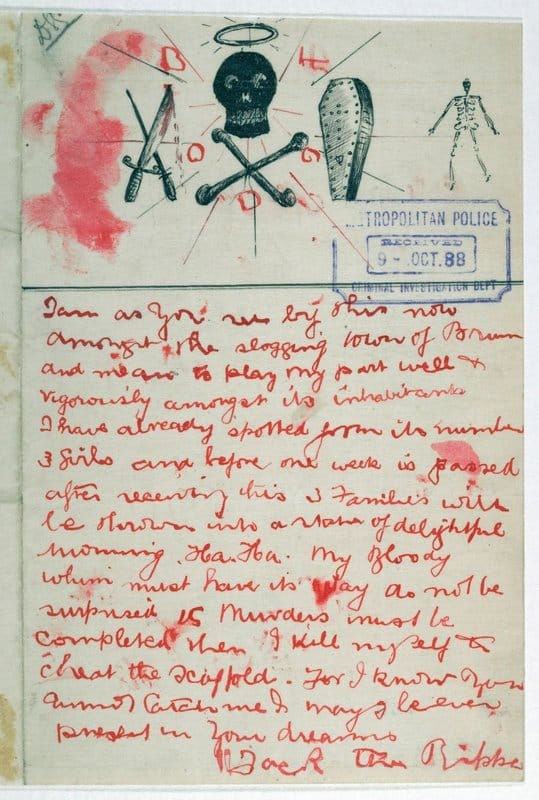 B
O
D
METROPOLITAN POLICE
RECEIVED
9 - OCT. 88
CRIMINAL INVESTIGATION DEPT
I am as you see by this now
amongst the slogging town of Brum
and mean to play my part well &
vigorously amongst its inhabitants
I have already spotted from its number
3 girls and before one week is passed
after receiving this 3 Families will
be thrown into a state of delightful
mourning. Ha. Ha. My Bloody
whim must have its way do not be
surprised 15 Murders must be
completed then I kill myself to
cheat the scaffold. For I know you
cannot catch me & may I be ever
present in your dreams
Jack the Ripper